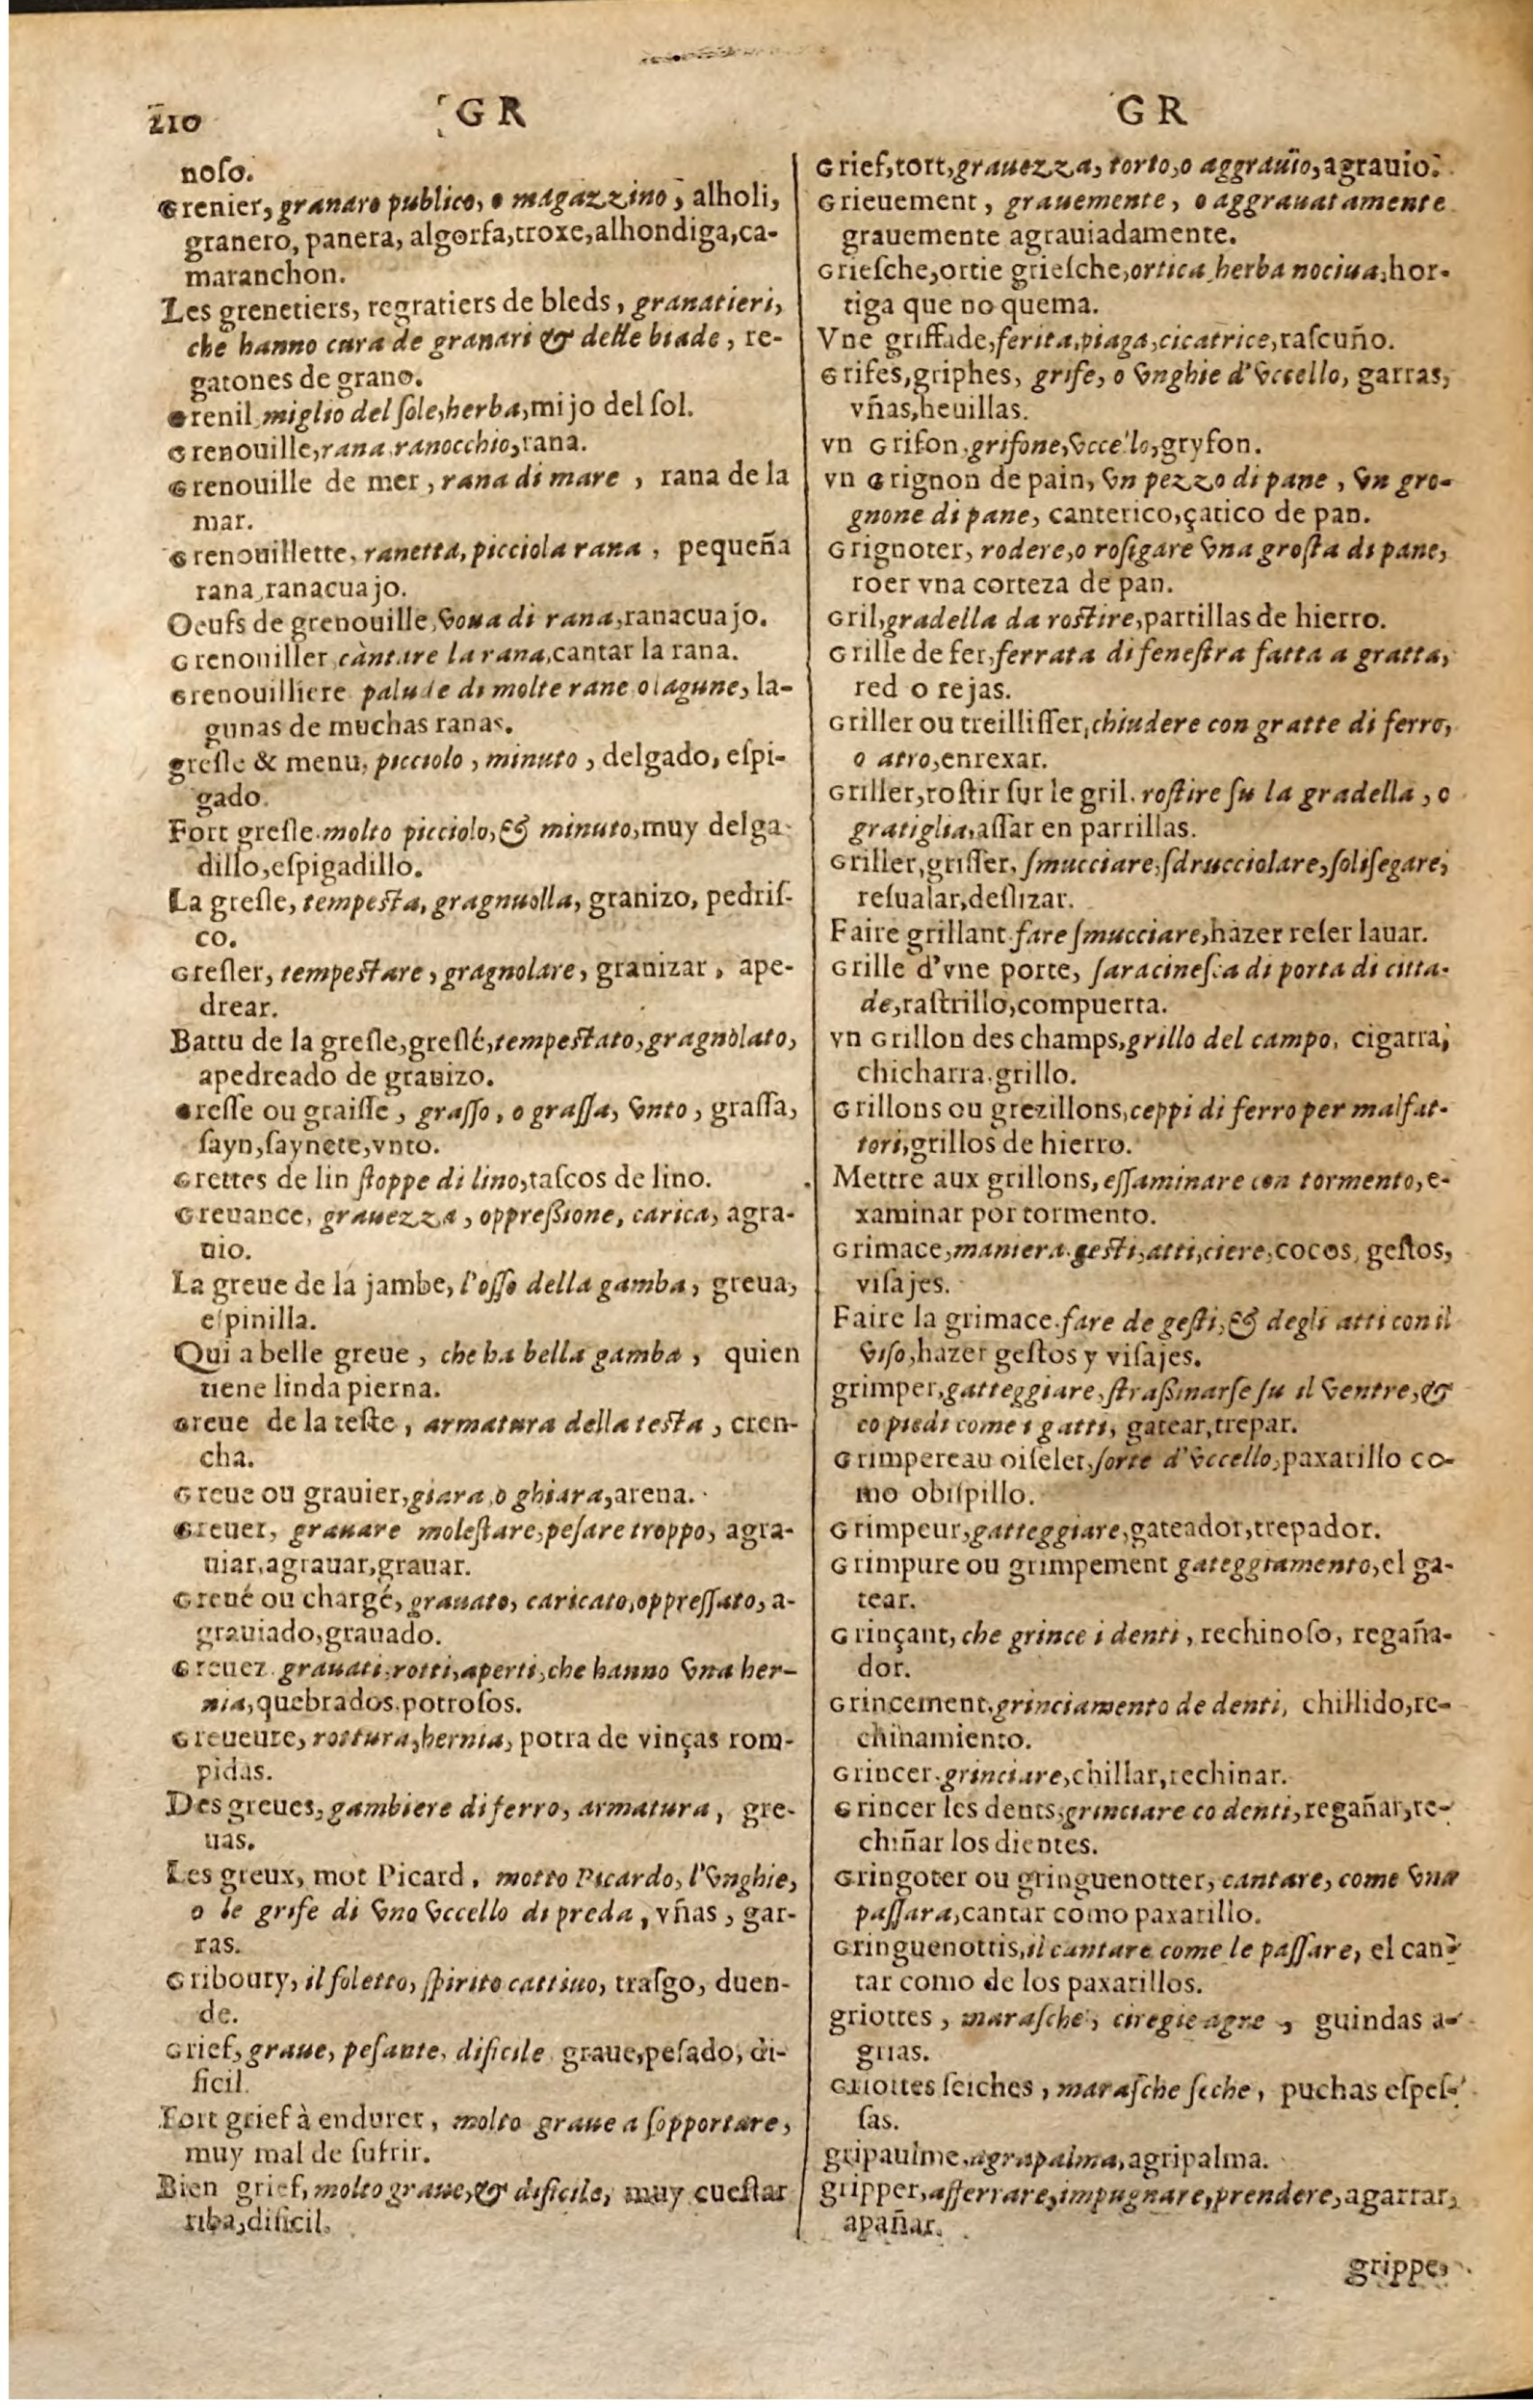 210
GR
GR
noſo.
Grenier, granaro publico, o magazzino, alholi,
granero, panera, algorfa,troxe,alhondiga,ca-
maranchon.
Les grenetiers, regratiers de bleds, granatieri,
che hanno cura de granari & delle biade, re-
gatones de grano.
Grenil,miglio del ſole,herba,mijo del ſol.
Grenouille,rana,ranocchio,rana.
Grenouille de mer, rana di mare, rana de la
mar.
Grenouillette, ranetta,picciola rana, pequeña
rana,ranacuajo.
Oeufs de grenouille,voua di rana,ranacuajo.
Grenouiller,càntare la rana,cantar la rana.
Grenouilliere palude di molte rane o lagune, la-
gunas de muchas ranas.
greſle & menu, picciolo, minuto, delgado, eſpi-
gado.
Fort greſle.molto picciolo,& minuto,muy delga-
dillo,eſpigadillo.
La greſle, tempesta, gragnuolla, granizo, pedriſ-
co.
Greſler, tempestare, gragnolare, granizar, ape-
drear.
Battu de la greſle,greſlé,tempestato,gragnolato,
apedreado de granizo.
Greſſe ou graiſſe, graſſo, o graſſa, vnto, graſſa,
ſayn,ſaynete,vnto.
Grettes de lin ſtoppe di lino,taſcos de lino.
Greuance, grauezza, oppreßione, carica, agra-
uio.
La greue de la jambe, l'oſſo della gamba, greua,
eſpinilla.
Qui a belle greue, che ha bella gamba, quien
tiene linda pierna.
Greue de la teſte, armatura della testa, cren-
cha.
Greue ou grauier,giara,o ghiara,arena.
Greuer, grauare moleſtare,peſare troppo, agra-
uiar,agrauar,grauar.
Greué ou chargé, grauato, caricato,oppreſſato, a-
grauiado,grauado.
Greuez.grauati,rotti,aperti,che hanno vna her-
nia,quebrados,potroſos.
Greueure, rottura,hernia, potra de vinças rom-
pidas.
Des greues, gambiere di ferro, armatura, gre-
uas.
Les greux, mot Picard, motto Picardo, l'vnghie,
o le grife di vno vccello di preda, vñas, gar-
ras.
Griboury, il foletto, ſpirito cattiuo, traſgo, duen-
de.
Grief, graue, peſante, dificile graue,peſado, di-
ficil.
Fort grief à endurer, molto graue a ſopportare,
muy mal de ſufrir.
Bien grief, molto graue,& dificile, muy cueſtar
riba,dificil.
Grief,tort,grauezza, torto,o aggrauio,agrauio.
Grieuement, grauemente, o aggrauatamente
grauemente agrauiadamente.
Grieſche,ortie grieſche,ortica,herba nociua,hor-
tiga que no quema.
Vne griffade,ferita,piaga,cicatrice,raſcuño.
Grifes,griphes, grife, o vnghie d'vccello, garras,
vñas,heuillas.
vn Grifon,grifone,vccello,gryfon.
vn Grignon de pain, vn pezzo di pane, vn gro-
gnone di pane, canterico,çatico de pan.
Grignoter, rodere,o roſigare vna groſta di pane,
roer vna corteza de pan.
Gril,gradella da rostire,partillas de hierro.
Grille de fer,ferrata di feneſtra fatta a gratta,
red o rejas.
Griller ou treilliſſer,chiudere con gratte di ferro,
o atro,enrexar.
Griller,roſtir ſur le gril.roſtire ſu la gradella, o
gratiglia,aſſar en parrillas.
Griller,griſſer, ſmucciare,ſdrucciolare,ſoliſegare,
reſualar,deſlizar.
Faire grillant.fare ſmucciare,hazer reſer lauar.
Grille d'vne porte, ſaracineſca di porta di citta-
de,raſtrillo,compuerta.
vn Grillon des champs,grillo del campo, cigarra,
chicharra,grillo.
Grillons ou grezillons,ceppi di ferro per malfat-
tori,grillos de hierro.
Mettre aux grillons,eſſaminare con tormento,e-
xaminar por tormento.
Grimace,maniera.gesti,atti,ciere,cocos, geſtos,
viſajes.
Faire la grimace.fare de geſti,& degli atti con il
viſo,hazer geſtos y viſajes.
grimper,gatteggiare,ſtraßinarſe ſu il ventre,&
co piedi come i gatti, gatear,trepar.
Grimpereau oiſelet,ſorte d'vccello,paxarillo co-
mo obiſpillo.
Grimpeur,gatteggiare,gateador,trepador.
Grimpure ou grimpement gateggiamento,el ga-
tear.
Grinçant, che grince i denti, rechinoſo, regaña-
dor.
Grincement,grinciamento de denti, chillido,re-
chinamiento.
Grincer.grinciare,chillar,rechinar.
Grincer les dents,grinciare co denti,regañar,re-
chiñar los dientes.
Gringoter ou gringuenotter, cantare, come vna
paſſara,cantar como paxarillo.
Gringuenottis,il cantare come le paſſare, el can-
tar como de los paxarillos.
griottes, maraſche, ciregie agre, guindas a-
grias.
Griottes ſeiches, maraſche ſeche, puchas eſpeſ-
ſas.
gripaulme,agrapalma,agripalma.
gripper,afferrare,impugnare,prendere,agarrar,
apañar.
grippe,